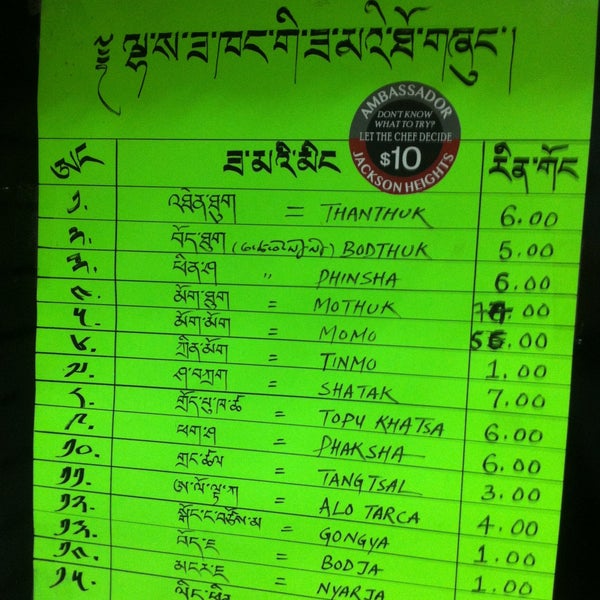 ༄༅། །ལྷ་ས་ཟ་ཁང་གི་ཟ་མའི་ཐོ་གཞུང་།
AMBASSADOR
DON'T KNOW
WHAT TO TRY?
LET THE CHEF DECIDE
$10
JACKSON HEIGHTS
ཨང་ ཟ་མའི་མིང རིན་གོང
༡. འཐེན་ཐུག = THANTHUK 6.00
༢. བོད་ཐུག BODTHUK 5.00
༣. ཕིན་ཤ " PHINSHA 6.00
༤. མོག་ཐུག = MOTHUK .00
༥. མོག་མོག = MOMO .00
༦. ཀྲིན་མོག = TINMO 1.00
༧. ཤ་བཀྲག = SHATAK 7.00
༨. གྲོད་པུ་ཁ་ཚ = TOPU KHATSA 6.00
༩. ཕག་ཤ = PHAKSHA 6.00
༡༠. གྲང་ཚལ = TANGTSAL 3.00
༡༡. ཨ་ལོ་ལྟ་ཀ = ALO TARCA 4.00
༡༢. སྒོང་ང་བཙོས་མ = GONGYA 1.00
༡༣. བོད་ཇ = BODJA 1.00
༡༤. མངར་ཇ = NYARJA
༡༥. ལིང་ཕིན